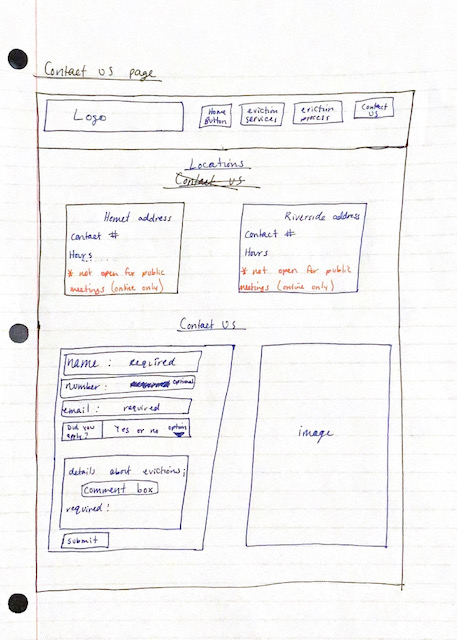 Contact us page
Logo
Home Button
eviction services
eviction process
Contact us
Locations
Contact us
Hemet address
Contact #
Hours
* not open for public
meetings (online only)
Riverside address
Contact #
Hours
* not open for public
meetings (online only)
Contact Us
name : required
number : optional
email : required
Did you apply? Yes or no option
details about evictions;
comment box
required!
submit
image